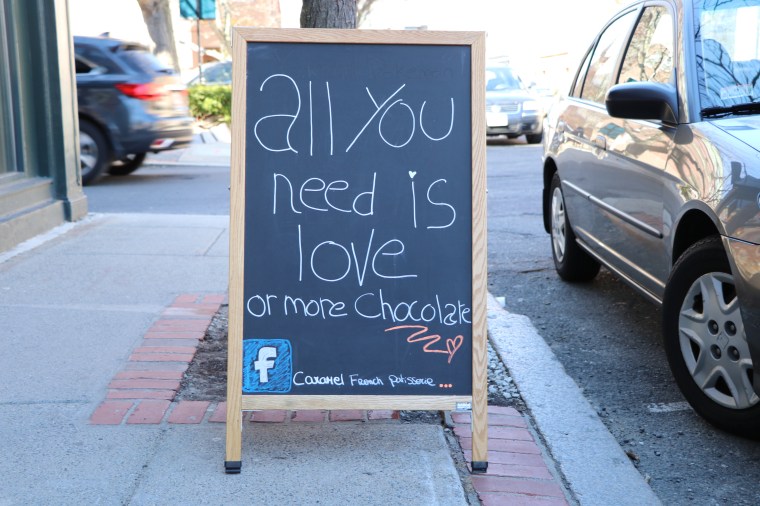 all You
need is
love
or more Chocolate
f
Caramel French patisserie ...